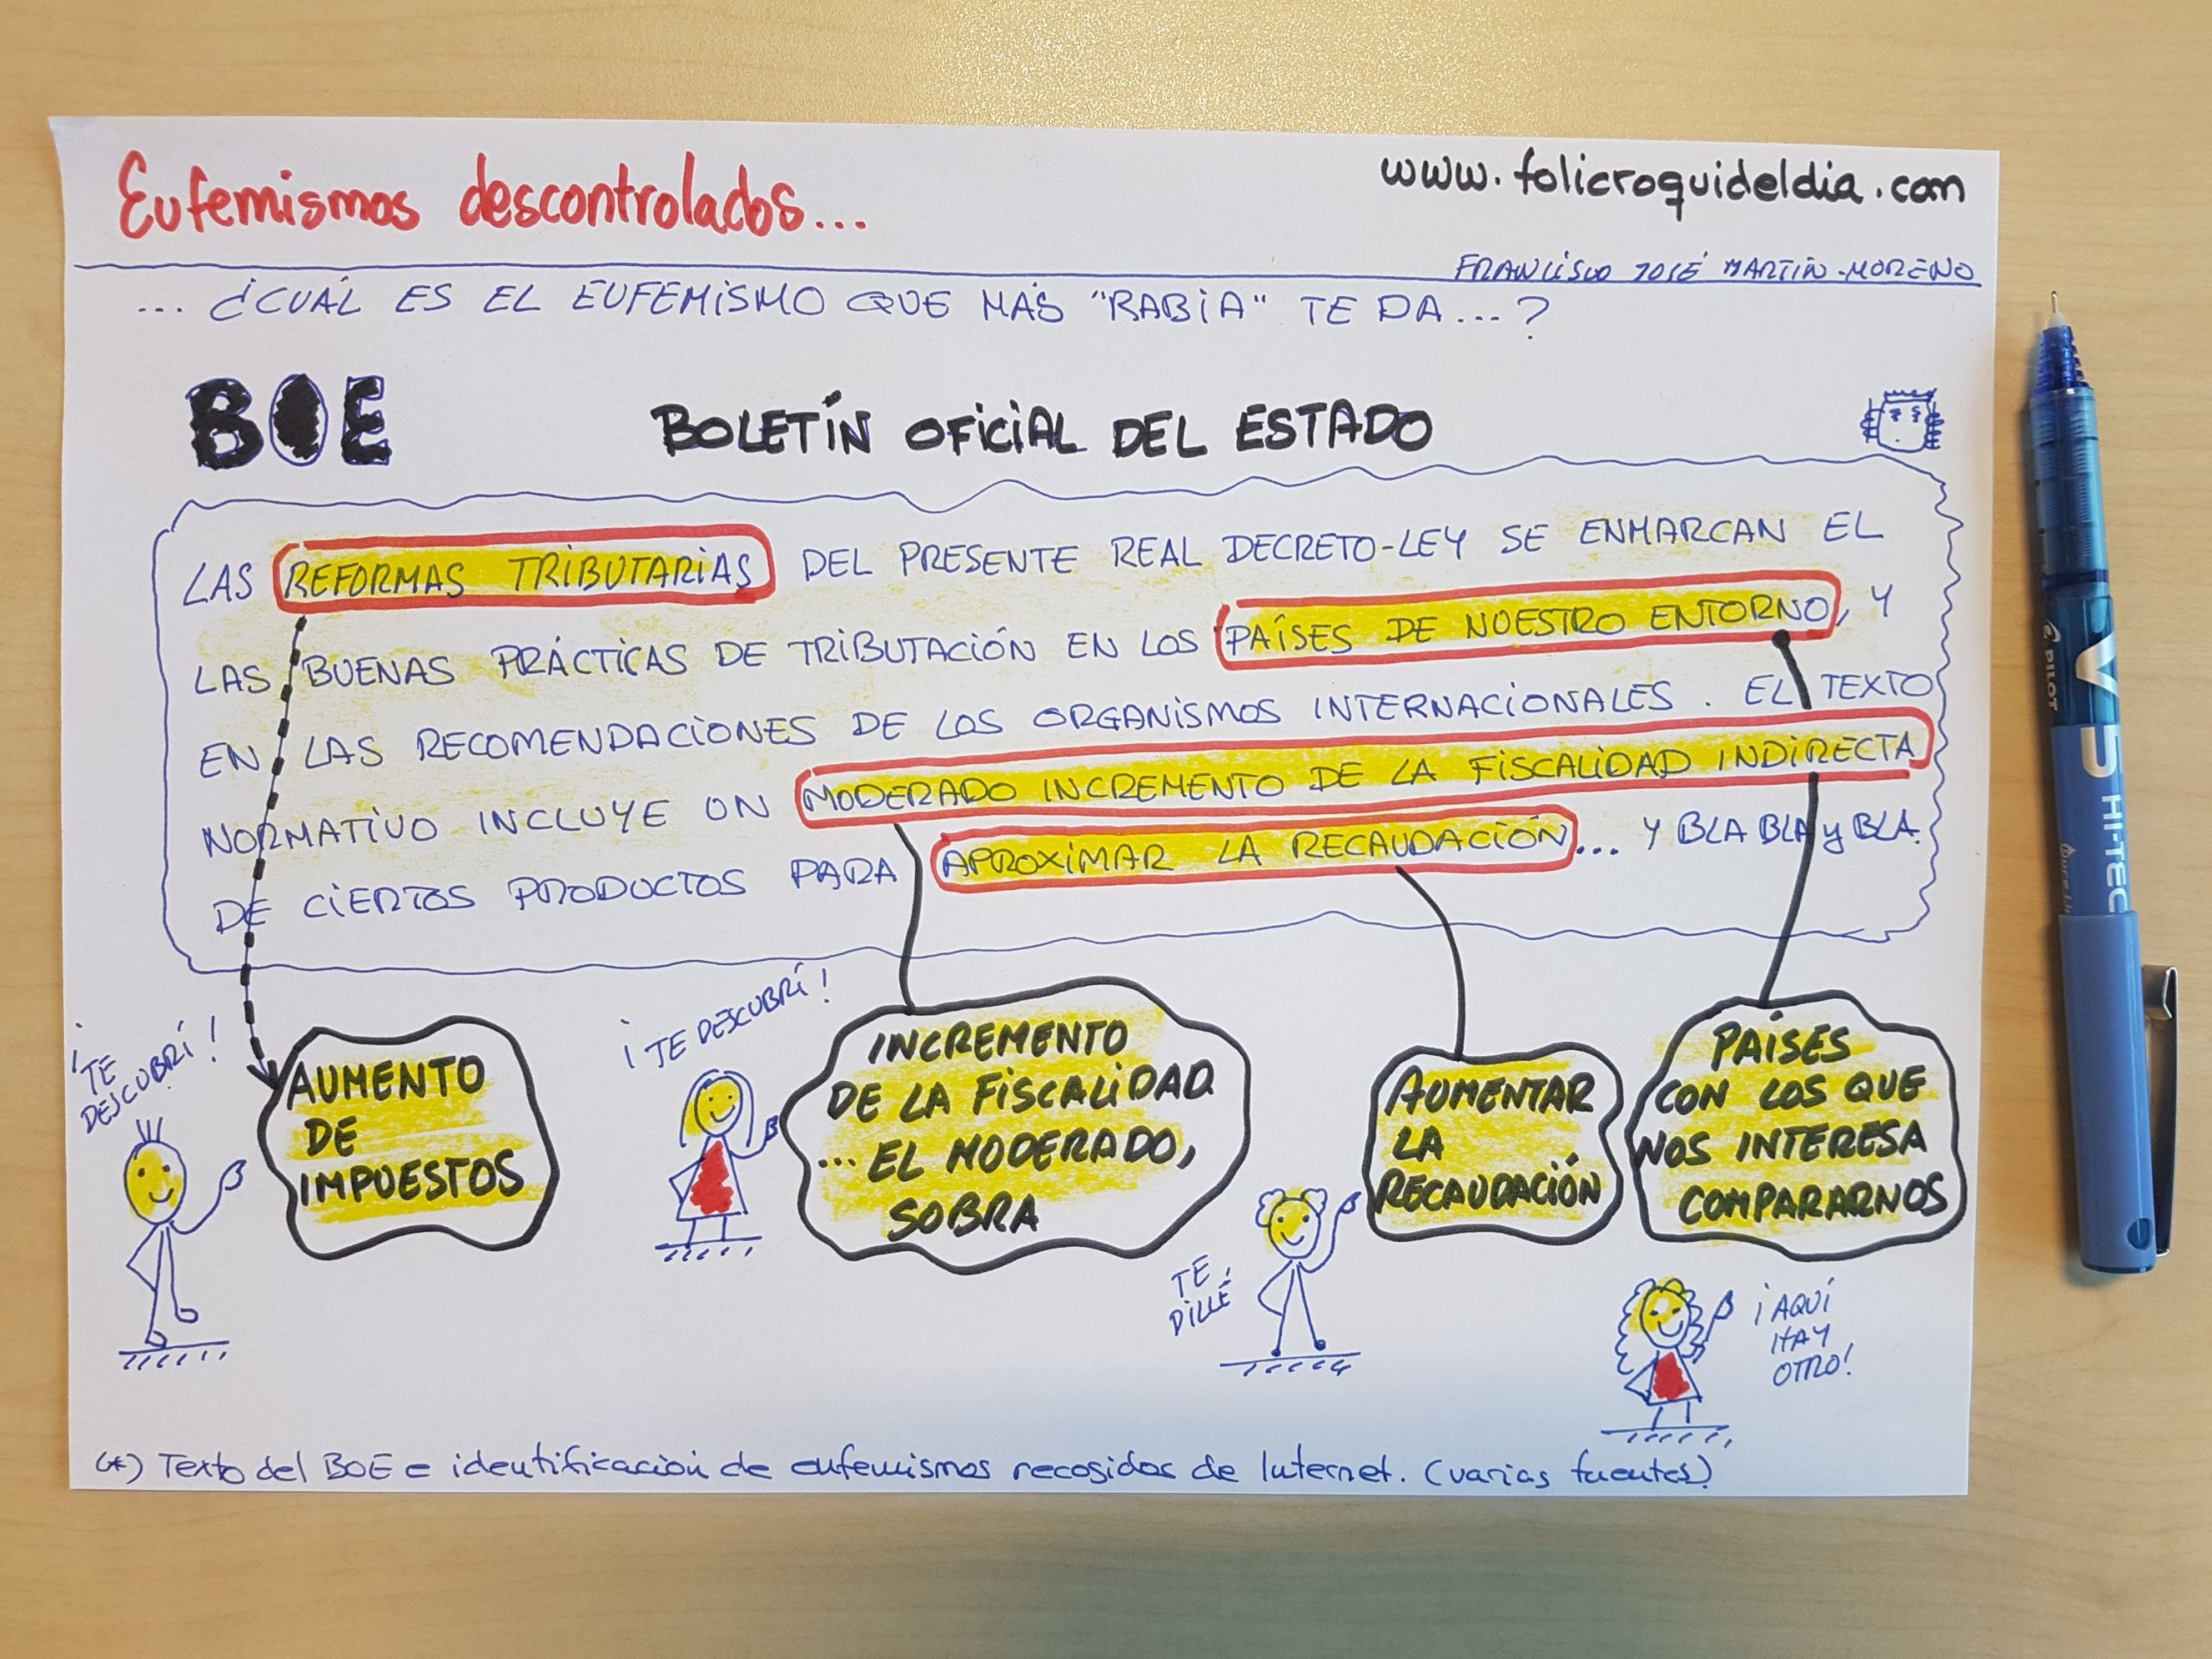 Eufemismos descontrolados...
www.folicroquideldia.com
FRANCISCO JOSÉ MARTÍN-MORENO
... ¿CUÁL ES EL EUFEMISMO QUE MÁS "RABIA" TE DA...?
BOE
BOLETÍN OFICIAL DEL ESTADO
LAS REFORMAS TRIBUTARIAS DEL PRESENTE REAL DECRETO-LEY SE ENMARCAN EL
LAS BUENAS PRÁCTICAS DE TRIBUTACIÓN EN LOS PAÍSES DE NUESTRO ENTORNO, Y
EN LAS RECOMENDACIONES DE LOS ORGANISMOS INTERNACIONALES. EL TEXTO
NORMATIVO INCLUYE UN MODERADO INCREMENTO DE LA FISCALIDAD INDIRECTA
DE CIERTOS PRODUCTOS PARA APROXIMAR LA RECAUDACIÓN... Y BLA BLA y BLA.
¡TE
DESCUBRÍ!
AUMENTO
DE
IMPUESTOS
¡TE DESCUBRÍ!
INCREMENTO
DE LA FISCALIDAD
... EL MODERADO,
SOBRA
TE
PILLÉ
AUMENTAR
LA
RECAUDACIÓN
PAÍSES
CON LOS QUE
NOS INTERESA
COMPARARNOS
¡AQUÍ
HAY
OTRO!
(*) Texto del BOE e identificación de eufemismos recogidos de Internet. (varias fuentes)
PILOT
V5 HI-TEC